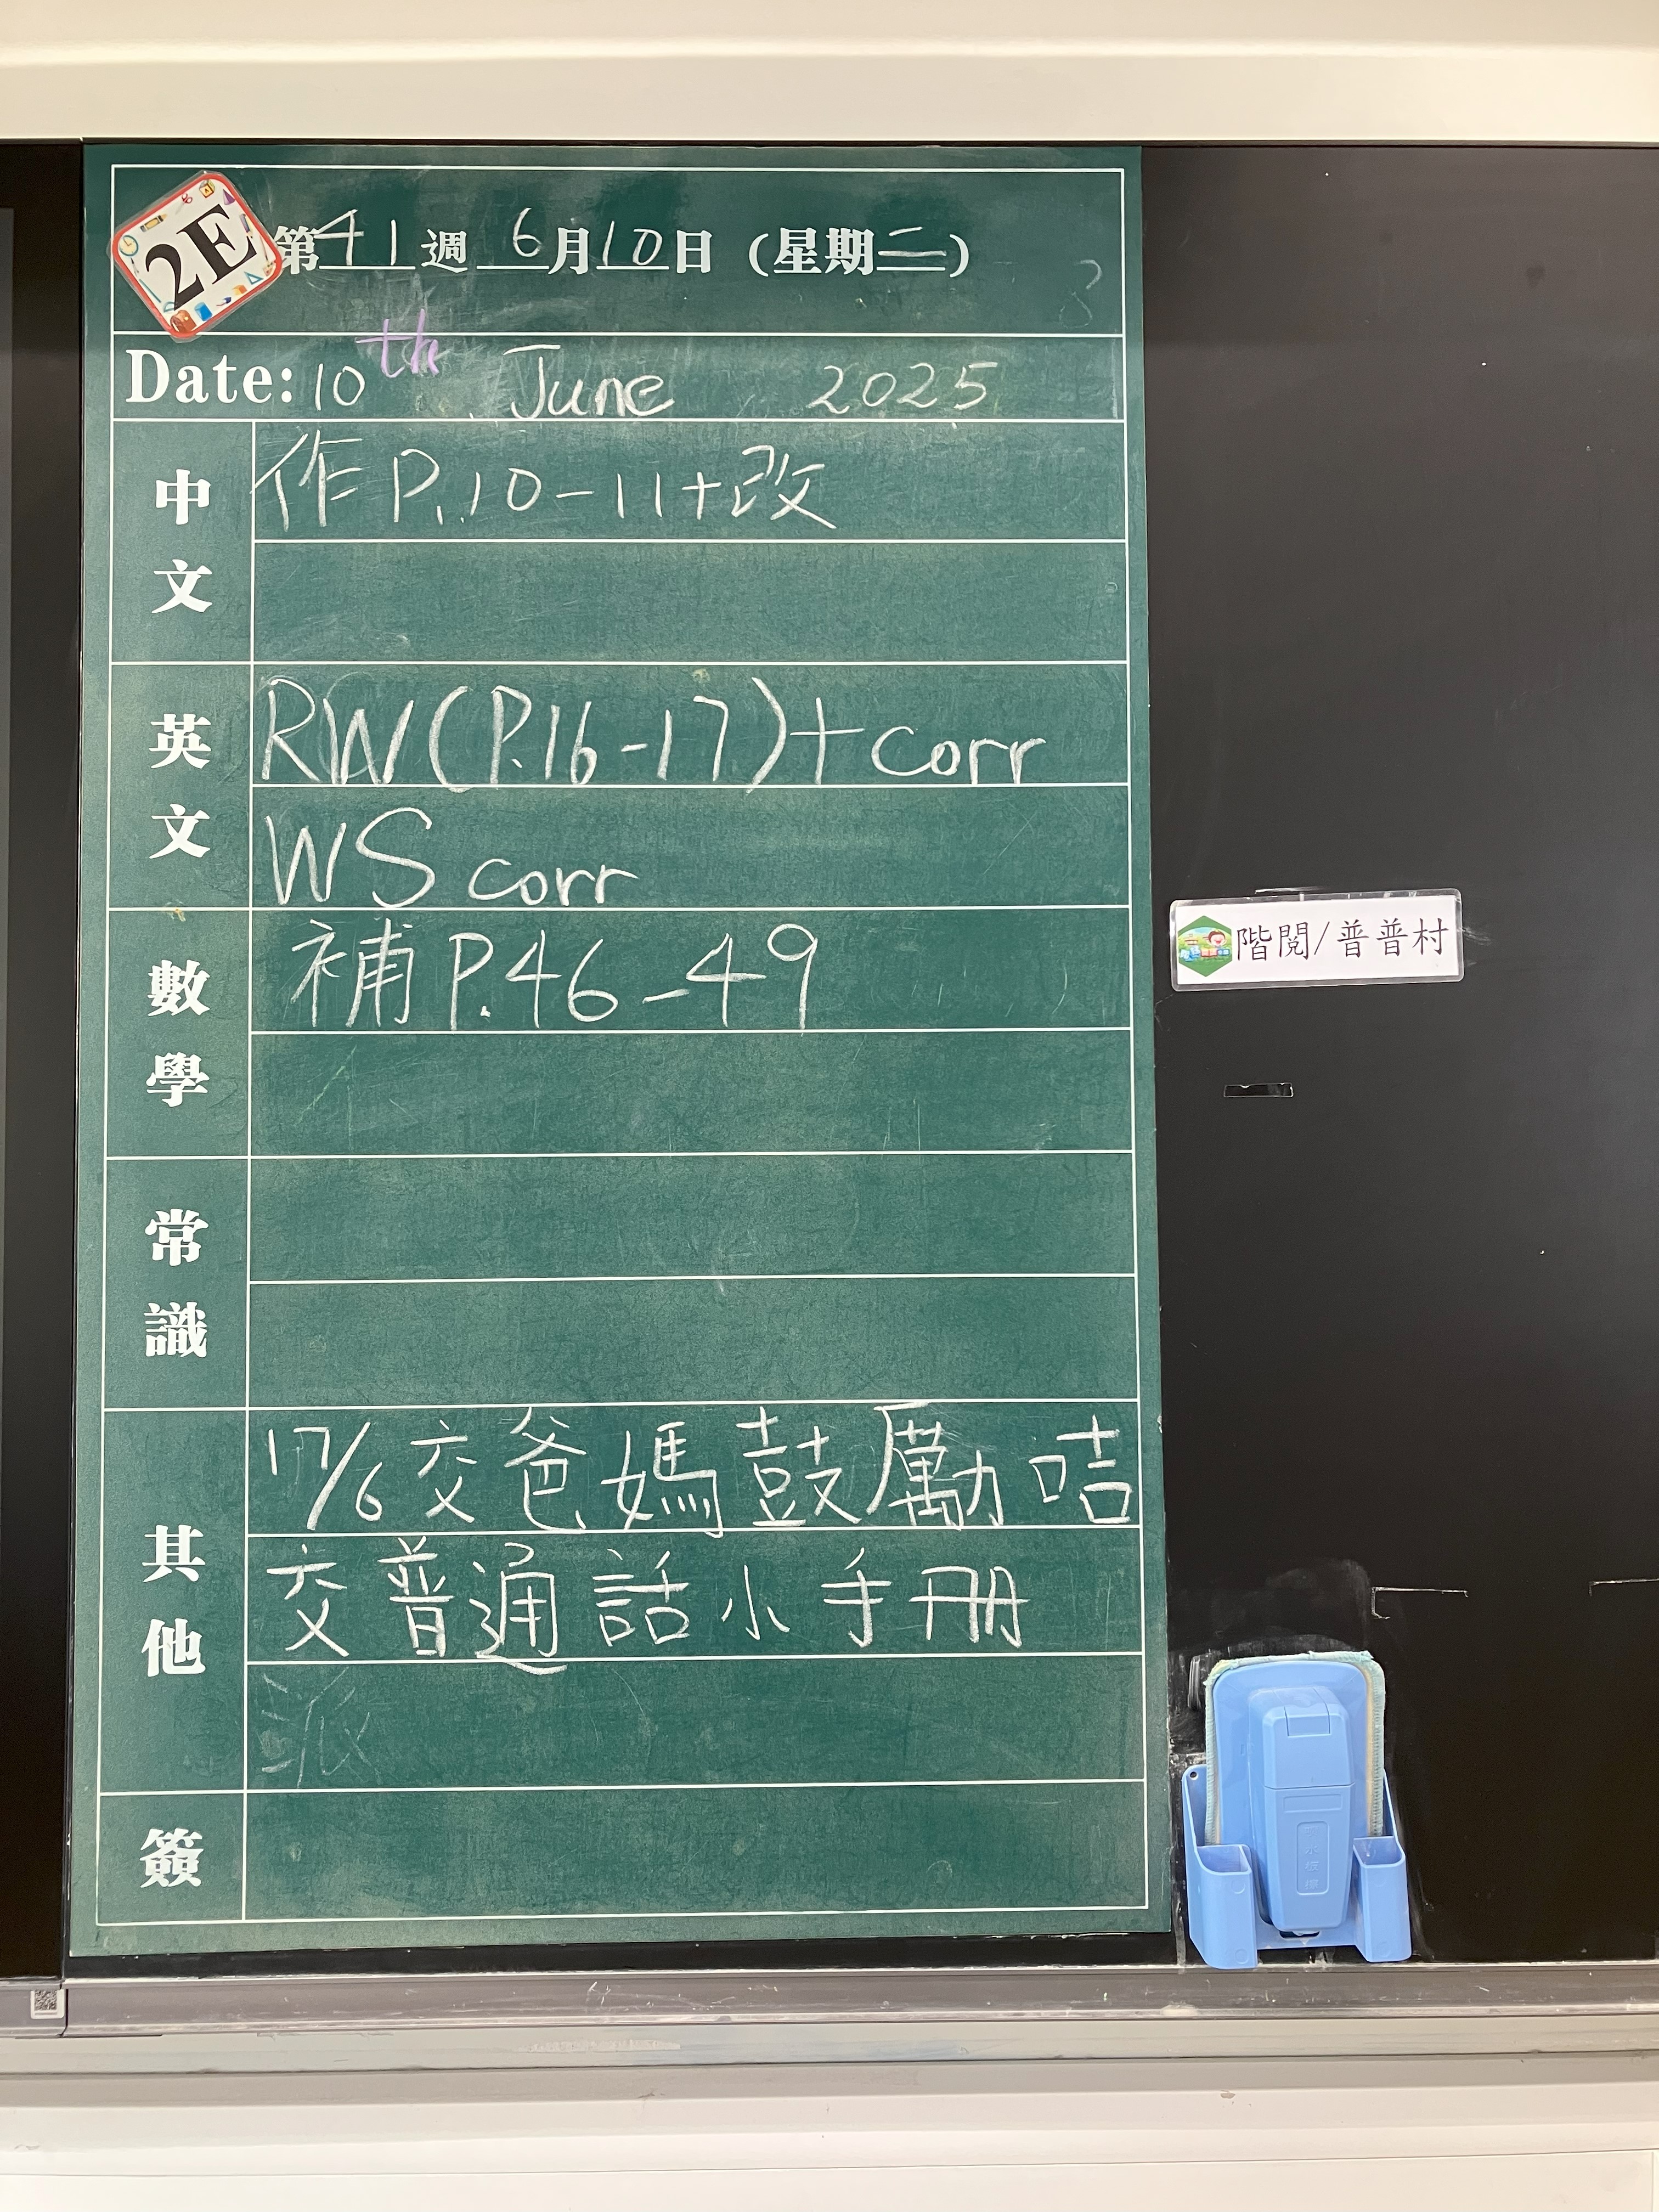 2E
第41週 6月10日 (星期二)
Date: 10th June 2025
中文
作P.10-11+改
英文
RW(P.16-17)+corr
WS corr
數學
補P.46-49
常識
其他
17/6交爸媽鼓勵咭
交普通話小手冊
派
簽
階閱/普普村